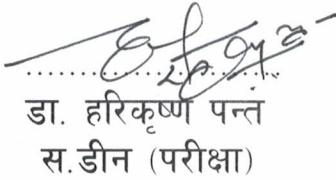 डा. हरिकृष्ण पन्त
स.डीन (परीक्षा)